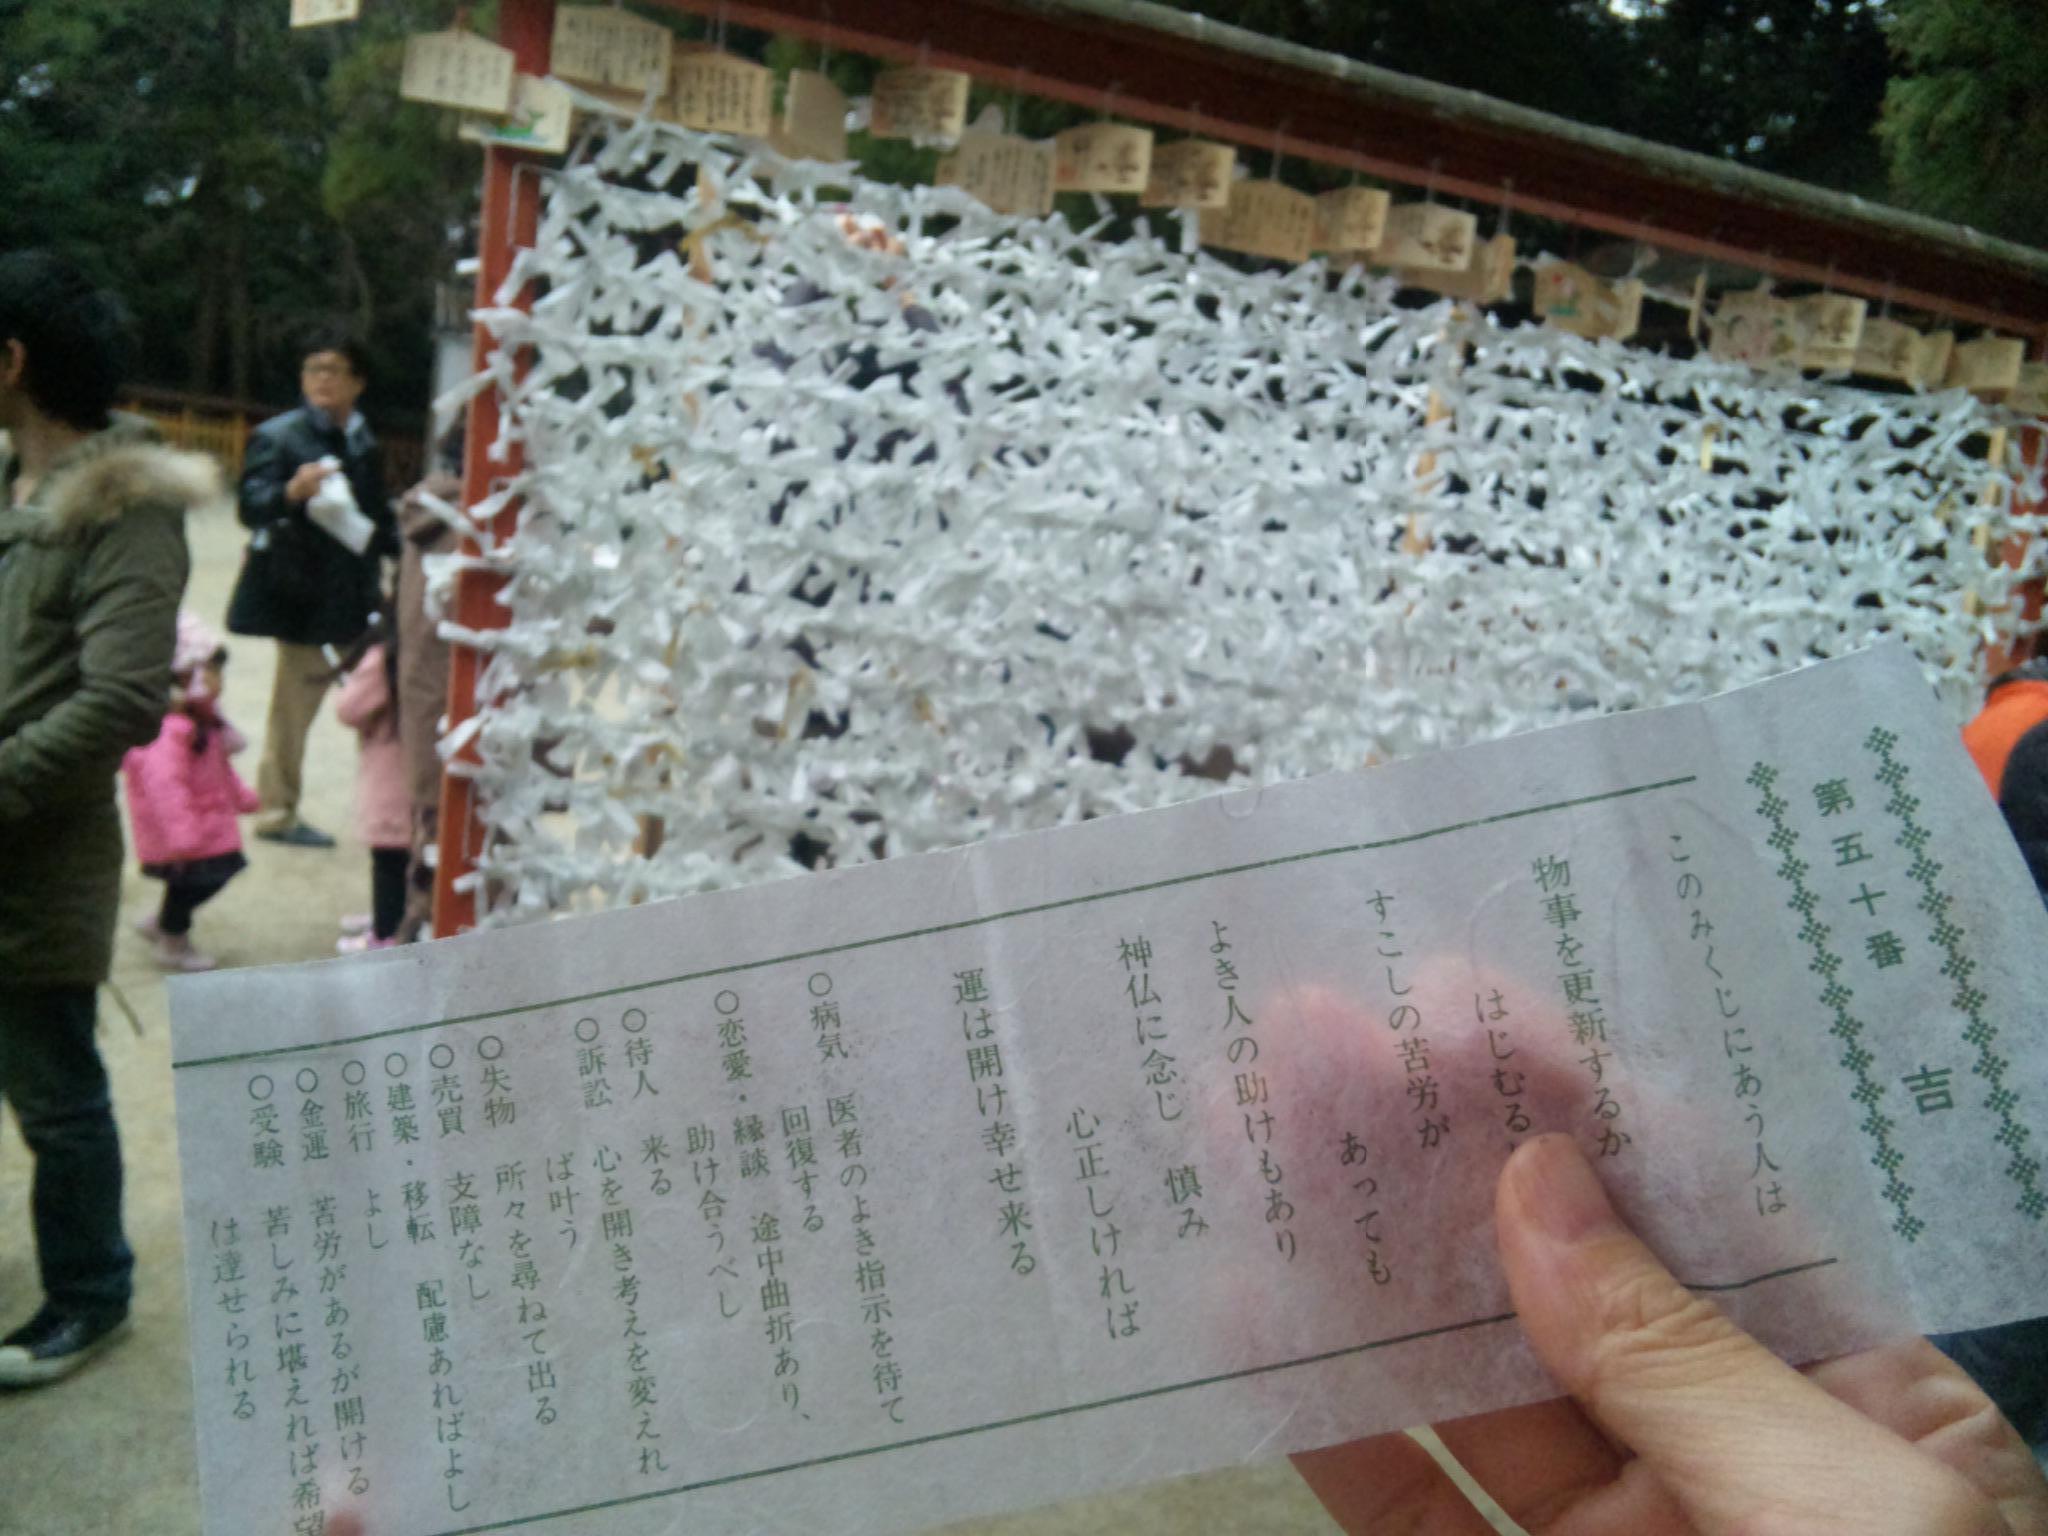 第五十番 吉
このみくじにあう人は
物事を更新するか
はじむる
すこしの苦労が
あっても
よき人の助けもあり
慎み
神仏に念じ
心正しければ
運は開け幸せ来る
○病気 医者のよき指示を待て
回復する
○恋愛・縁談 途中曲折あり、
助け合うべし
○待人 来る
○訴訟 心を開き考えを変えれ
ば叶う
○失物 所々を尋ねて出る
○売買 支障なし
○建築・移転 配慮あればよし
○旅行 よし
○金運 苦労があるが開ける
○受験 苦しみに堪えれば希望
は達せられる